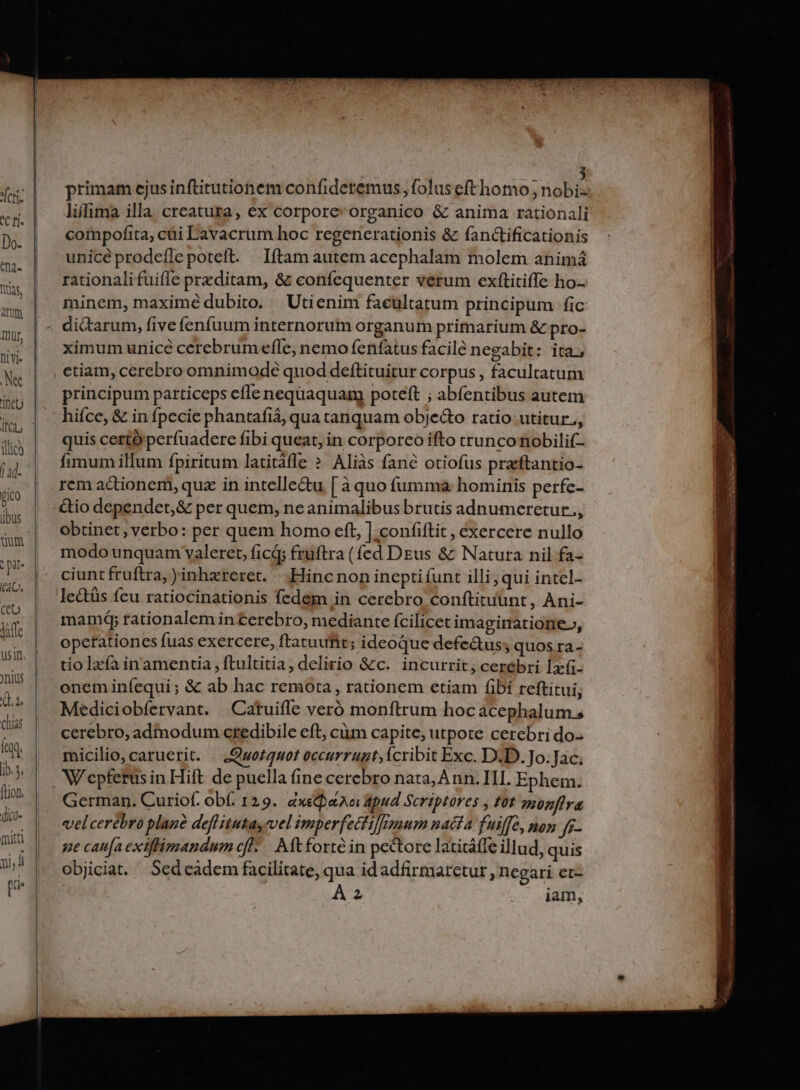 3
primam ejus inſtitutionem conſideremus, ſolus eſt homo, nobi-
liſſima illa creatura, ex corpore organico & anima rationali
compoſita, cüi Lavacrum hoc regenerationis & ſanctificationis
unicè prodeſſe poteſt. Iſtam autem acephalam molem animâ
rationali fuiſſe præditam, & conſequenter verum exſtitiſſe ho-
minem, maximè dubito. Uti enim facultatum principum ſic
dictarum, ſive ſenſuum internorum organum primarium & pro-
ximum unicè cerebrum eſſe, nemo ſenſatus facilè negabit: ita,
etiam, cerebro omnimodè quod deſtituitur corpus, facultatum
principum particeps eſſe nequaquam poteſt; abſentibus autem
hiſce, & in ſpecie phantaſiâ, qua tanquam objecto ratio utitur,
quis certò perſuadere ſibi queat, in corporeo iſto trunco nobiliſ-
ſimum illum ſpiritum latitâſſe? Aliàs ſanè otioſus præſtantio-
rem actionem, quæ in intellectu [à quo ſumma hominis perfe-
ctio dependet, & per quem, ne animalibus brutis adnumeretur,
obtinet, verbo: per quem homo eſt,] conſiſtit, exercere nullo
modo unquam valeret, ſicq; fruſtra (ſed DEUS & Natura nil fa-
ciunt fruſtra,) inhæreret. Hinc non inepti ſunt illi, qui intel-
lectûs ſeu ratiocinationis ſedem in cerebro conſtituunt, Ani-
mamq; rationalem in cerebro, mediante ſcilicet imaginatione,
operationes ſuas exercere, ſtatuunt; ideoque defectus, quos ra-
tio læſa in amentia, ſtultitia, delirio &c. incurrit, cerebri læſi-
onem inſequi; & ab hac remota, rationem etiam ſibi reſtitui,
Medici obſervant. Caruiſſe verò monſtrum hoc acephalum
cerebro, admodum credibile eſt, cùm capite, utpote cerebri do-
micilio, caruerit. Quotquot occurrunt, ſcribit Exc. D.D. Jo. Jac.
Wepferus in Hiſt de puella ſine cerebro nata, Ann. III. Ephem.
German. Curioſ. obſ. 129. ἀκέφαλοι apud Scriptores, tot monſtra
vel cerebro planè deſtituta, vel imperfectiſſimum nacta fuiſſe, non ſi-
ne cauſa exiſtimandum eſt. Aſt fortè in pectore latitâſſe illud, quis
objiciat. Sed eâdem facilitate, qua id adfirmaretur, negari et-
A 2 iam,